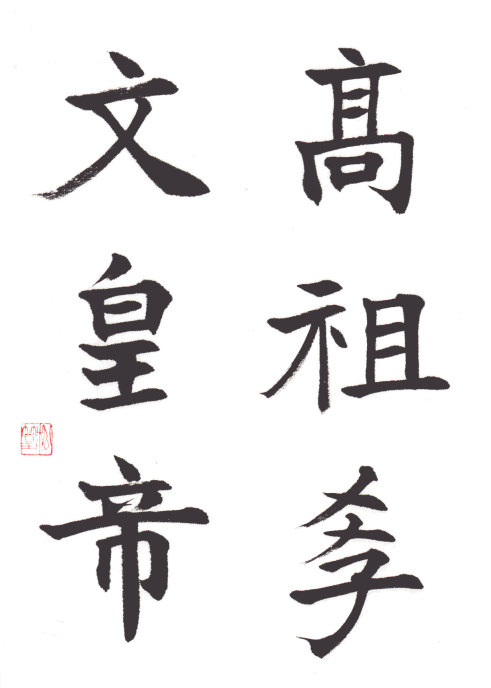 髙祖孝
文皇帝